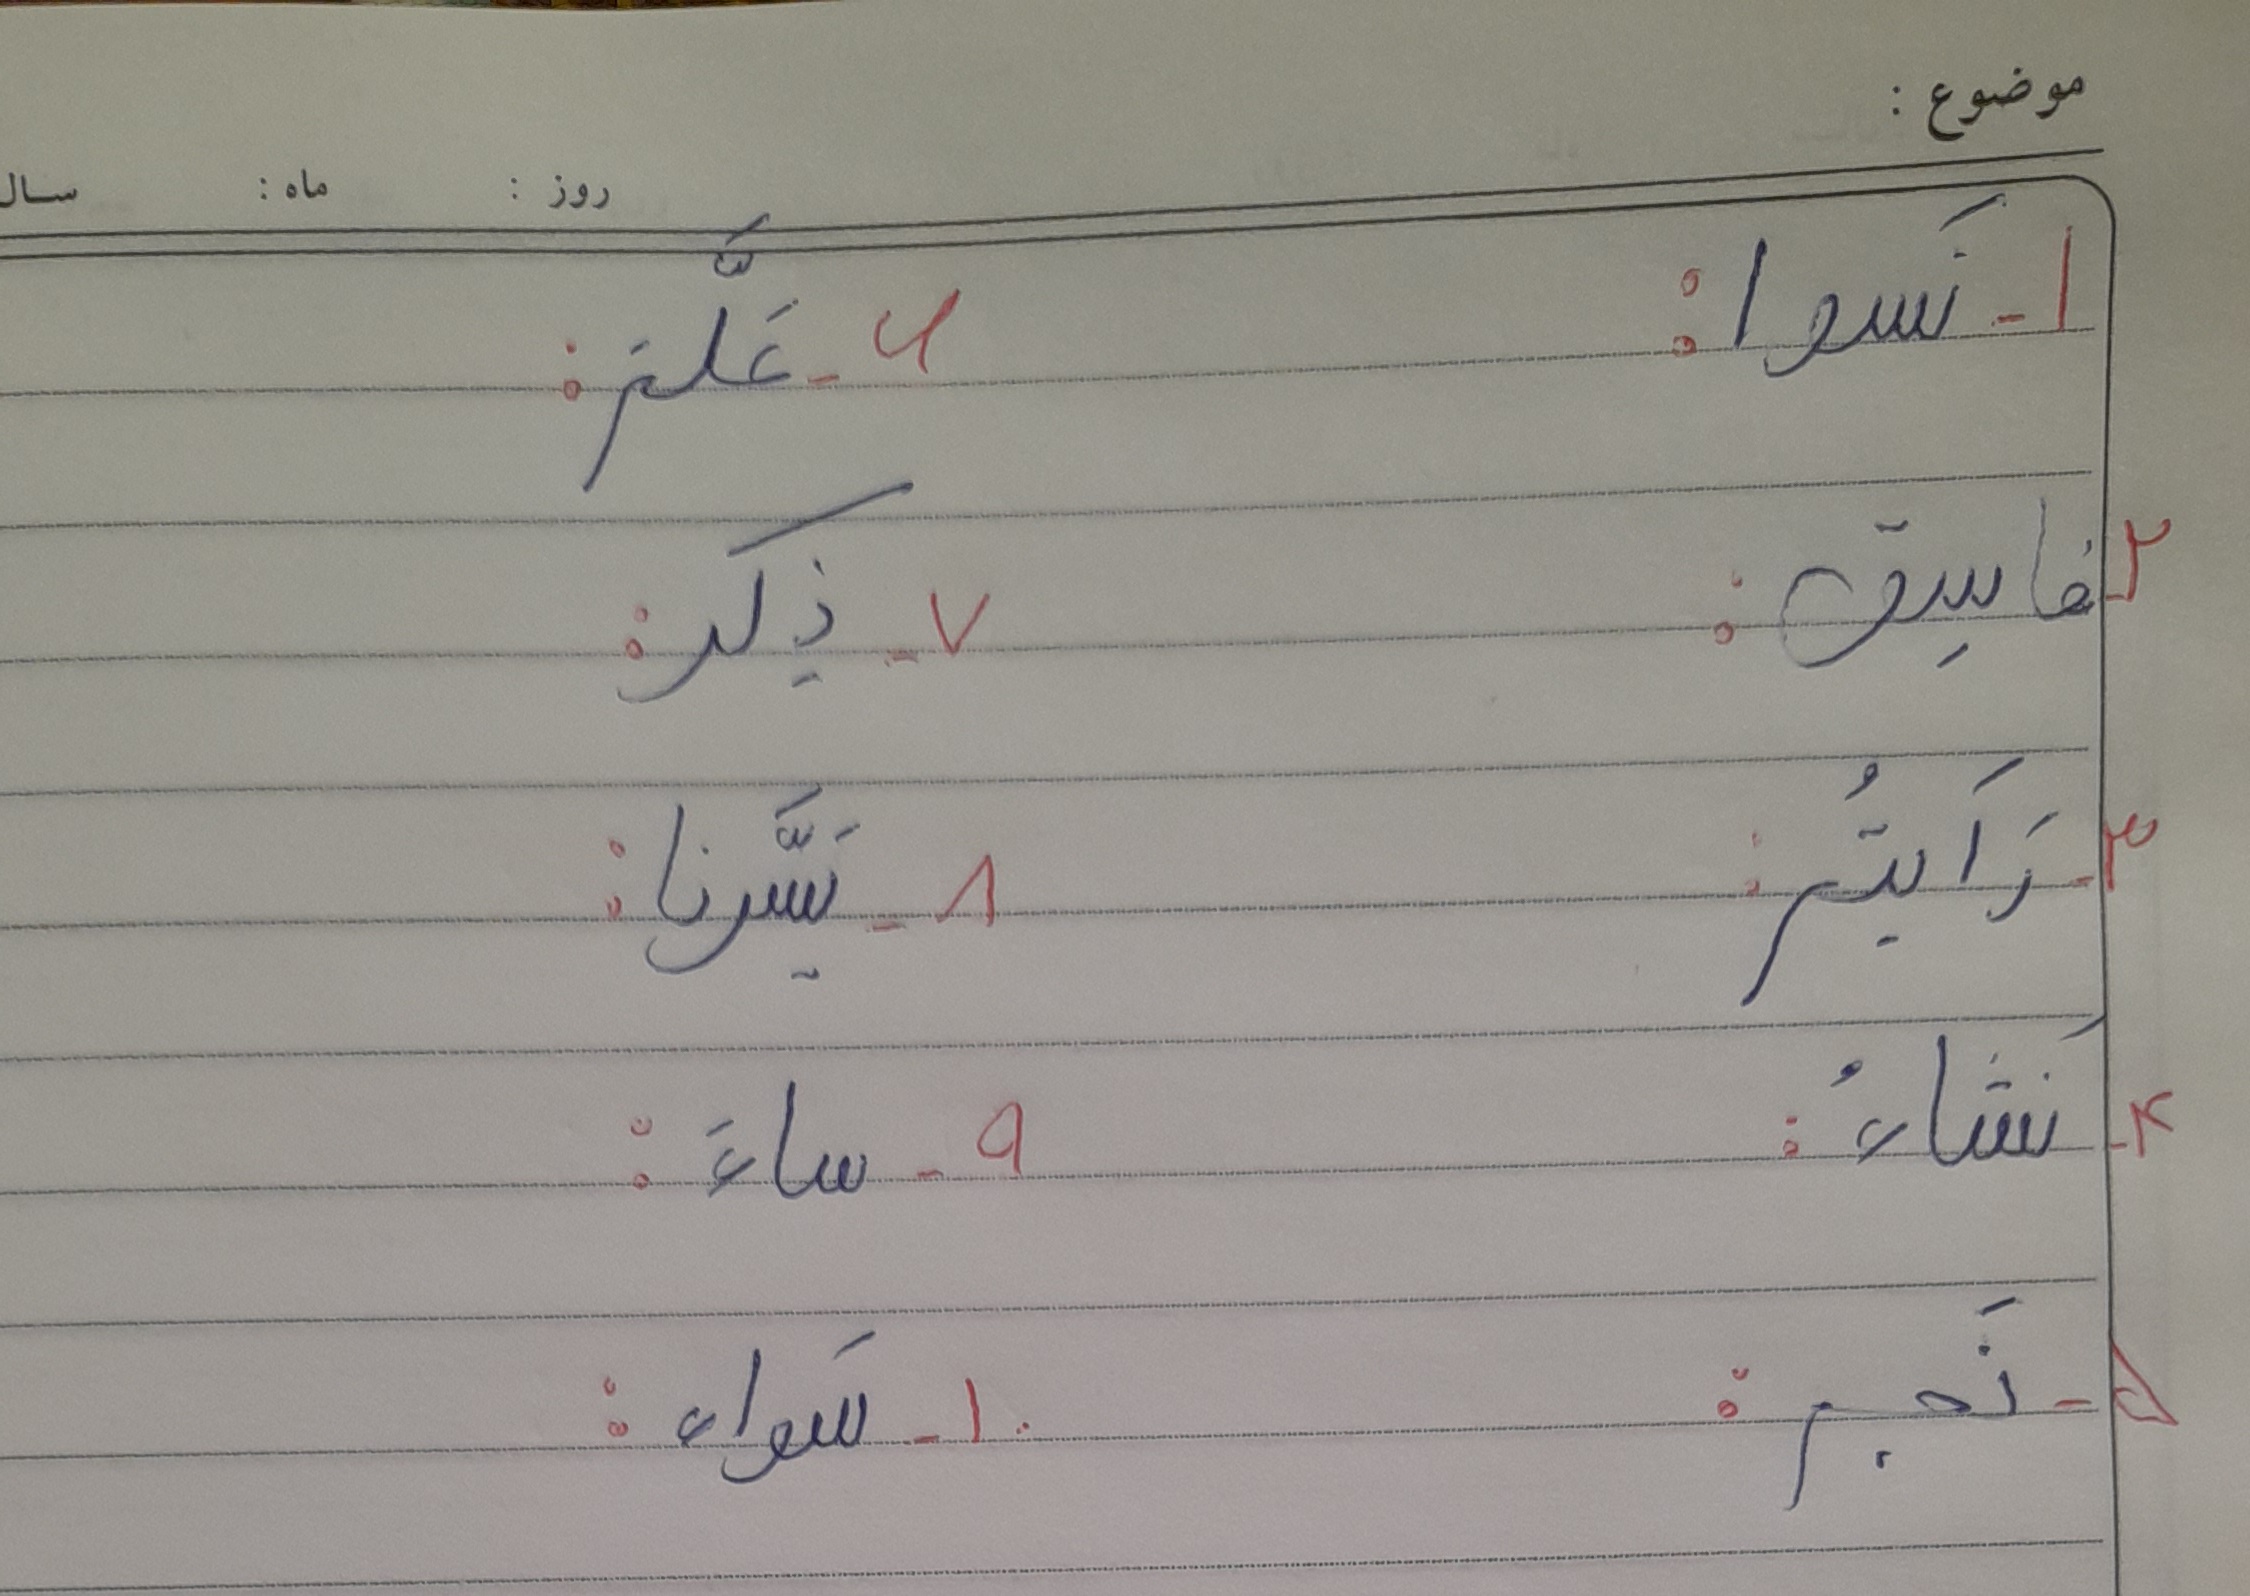 موضوع :
روز : ماه : سال
۱- نَسوا :
۶- عَلَّمَ :
۲- فاسِق :
۷- ذِکر :
۳- رَاَیتُم :
۸- یَسَّرنا :
۴- نَشاءُ :
۹- ساءَ :
۵- نَجم :
۱۰- سَواء :